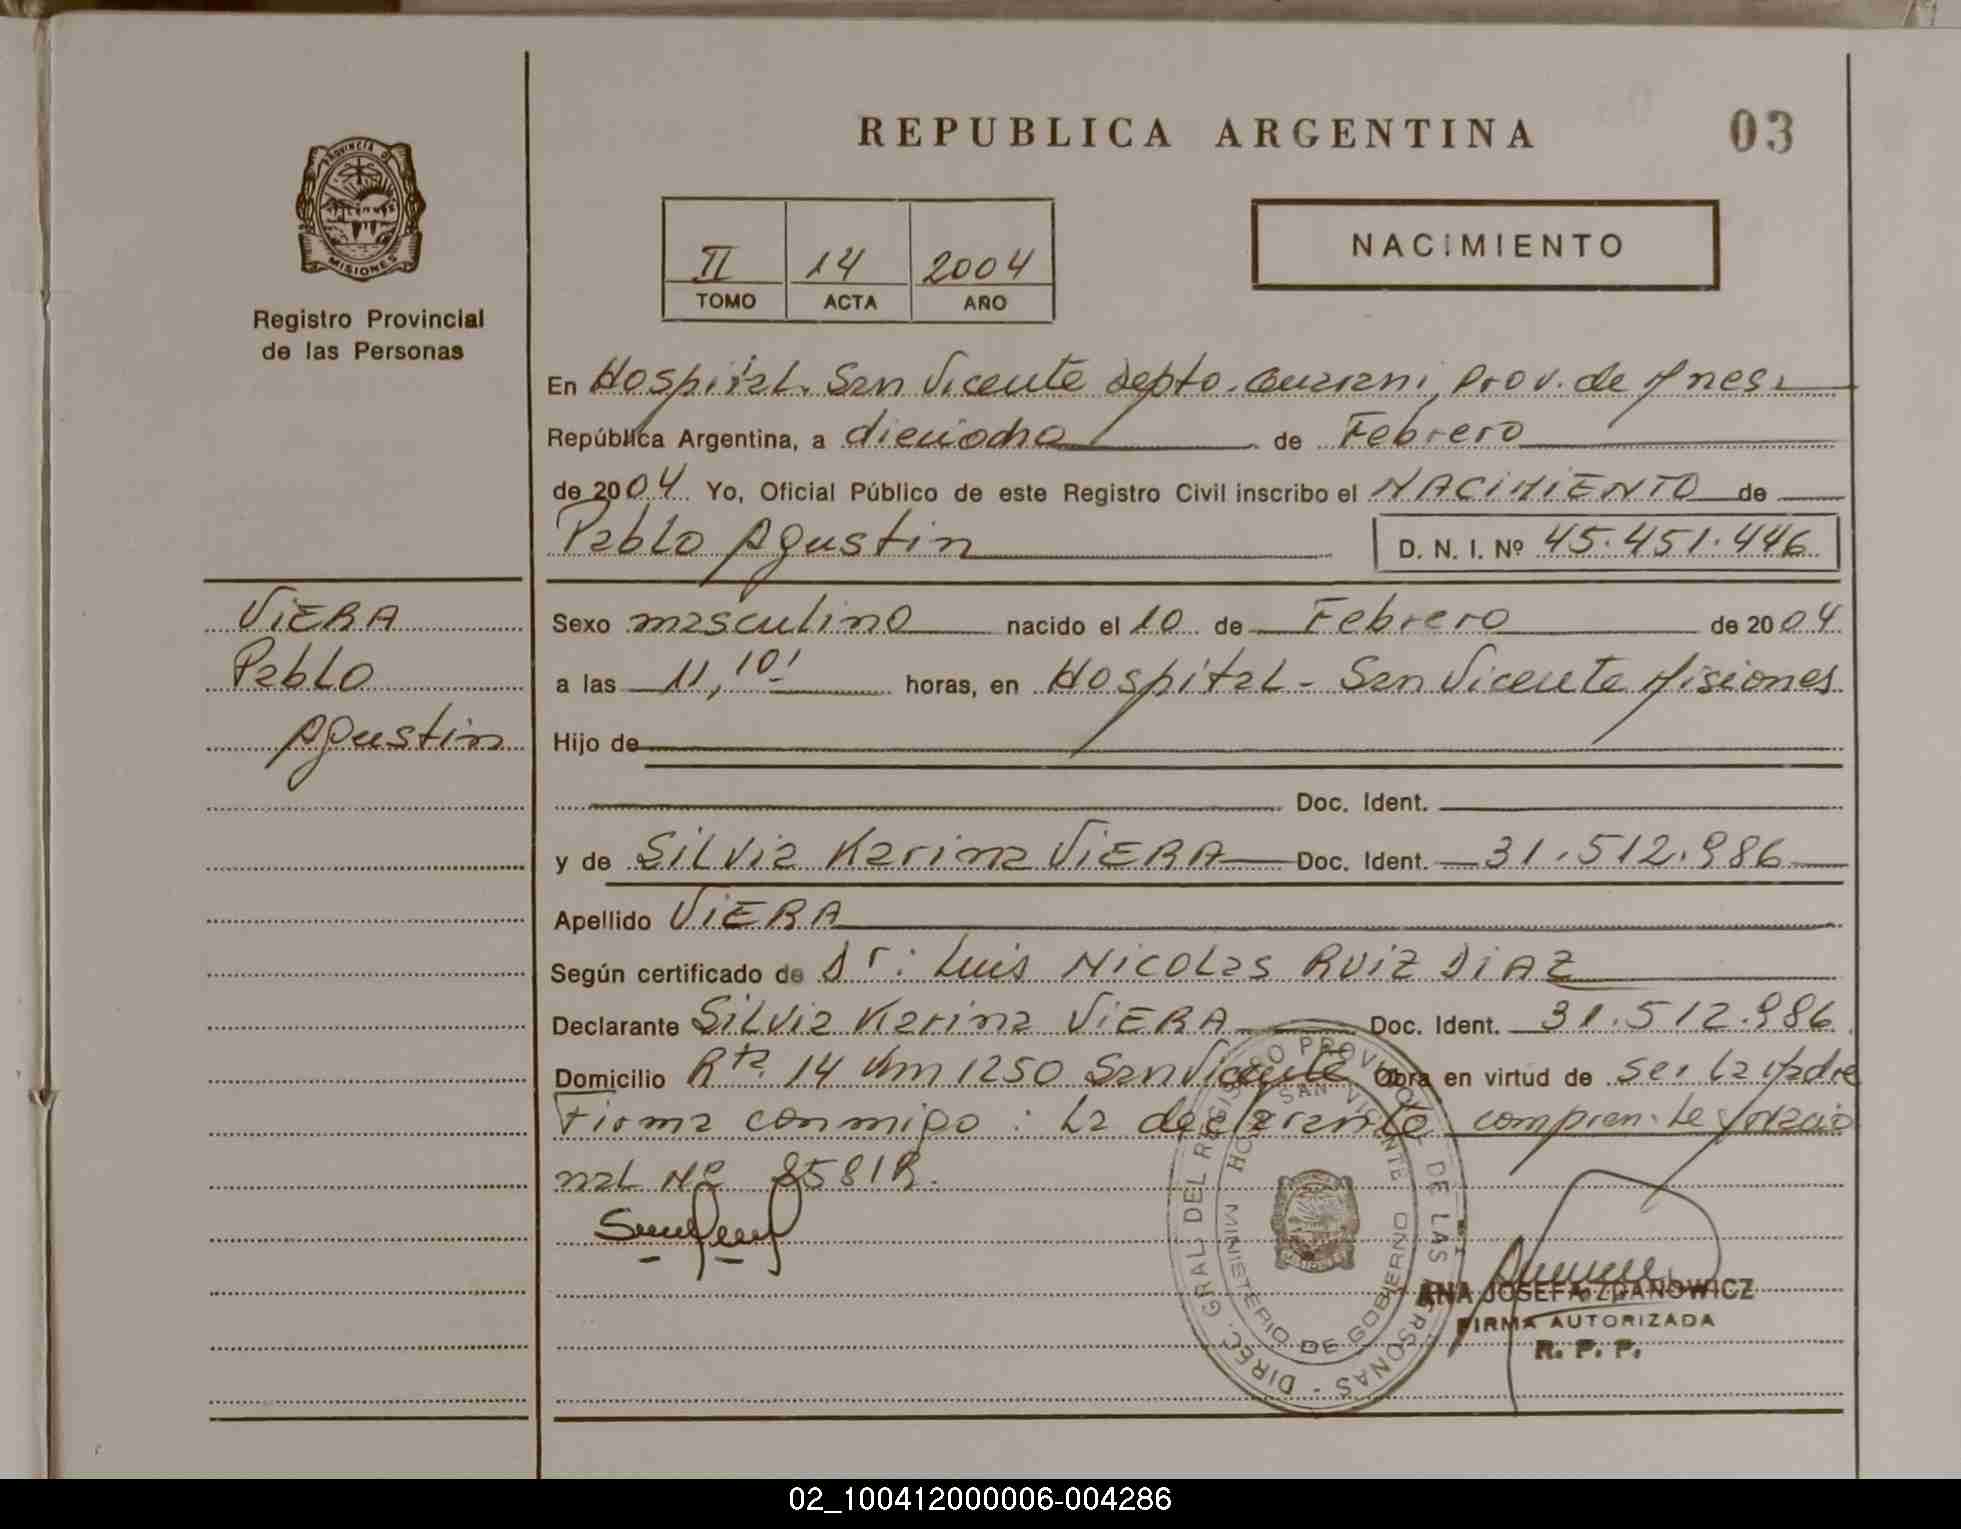 REPUBLICA ARGENTINA
03
PROVINCIA DE
MISIONES
Registro Provincial
de las Personas
II 14 2004
TOMO ACTA AÑO
NACIMIENTO
En Hospital. San Vicente Depto. Guarani, Prov. de Mnes.
República Argentina, a dieciocho de Febrero
de 2004 Yo, Oficial Público de este Registro Civil inscribo el NACIMIENTO de
Pablo Agustin D. N. I. Nº 45.451.446
VIERA
Pablo
Agustin
Sexo masculino nacido el 10 de Febrero de 2004
a las 11,10' horas, en Hospital - San Vicente Misiones
Hijo de
Doc. Ident.
y de Silvia Karina VIERA Doc. Ident. 31.512.986
Apellido VIERA
Según certificado de Dr: Luis Nicolas RUIZ DIAZ
Declarante Silvia Karina VIERA Doc. Ident. 31.512.986
Domicilio Rta. 14 Km 1250 San Vicente Obra en virtud de ser la Madre
Firma conmigo: La declarante compren. te
nal Nº
DIREC. GRAL. DEL REGISTRO PROVINCIAL DE LAS PERSONAS -
SAN VICENTE
MINISTERIO DE GOBIERNO
ANA JOSEFA ZDANOWICZ
FIRMA AUTORIZADA
R. P. P.
02_100412000006-004286